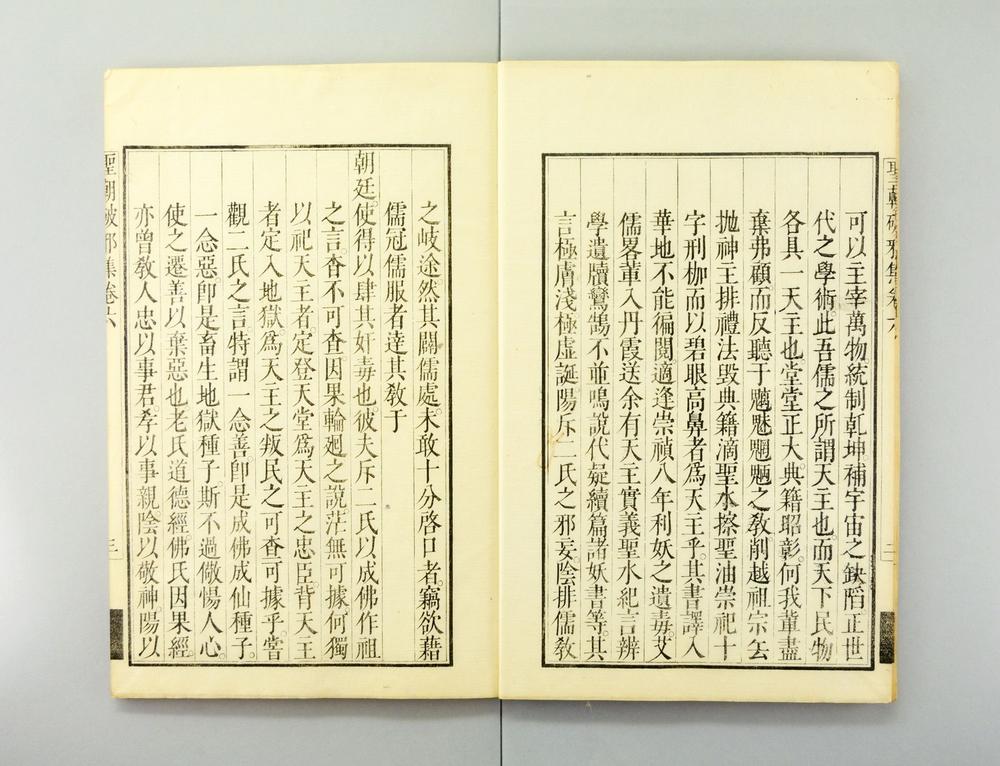 聖朝破邪集卷六
可以主宰萬物統制乾坤補宇宙之缺陷正世
代之學術此吾儒之所謂天主也而天下民物
各具一天主也堂堂正大典籍昭彰何我輩盡
棄弗顧而反聽于魑魅魍魎之教削越祖宗去
拋神主排禮法毀典籍滴聖水擦聖油崇祀十
字刑枷而以碧眼高鼻者為天主乎其書譯入
華地不能徧閱適逢崇禎八年利妖之遺毒艾
儒畧輩入丹霞送余有天主實義聖水紀言辨
學遺牘鸞鵠不並鳴說代疑續篇諸妖書等其
言極膚淺極虛誕陽斥二氏之邪妄陰排儒教
二
之岐途然其闢儒處未敢十分啓口者竊欲藉
儒冠儒服者達其教于
朝廷使得以肆其奸毒也彼夫斥二氏以成佛作祖
之言杳不可查因果輪廻之說茫無可據何獨
以祀天主者定登天堂為天主之忠臣背天主
者定入地獄為天主之叛民之可查可據乎嘗
觀二氏之言特謂一念善卽是成佛成仙種子
一念惡卽是畜生地獄種子斯不過儆惕人心
使之遷善以棄惡也老氏道德經佛氏因果經
亦曾教人忠以事君孝以事親陰以敬神陽以
聖朝破邪集卷六
三